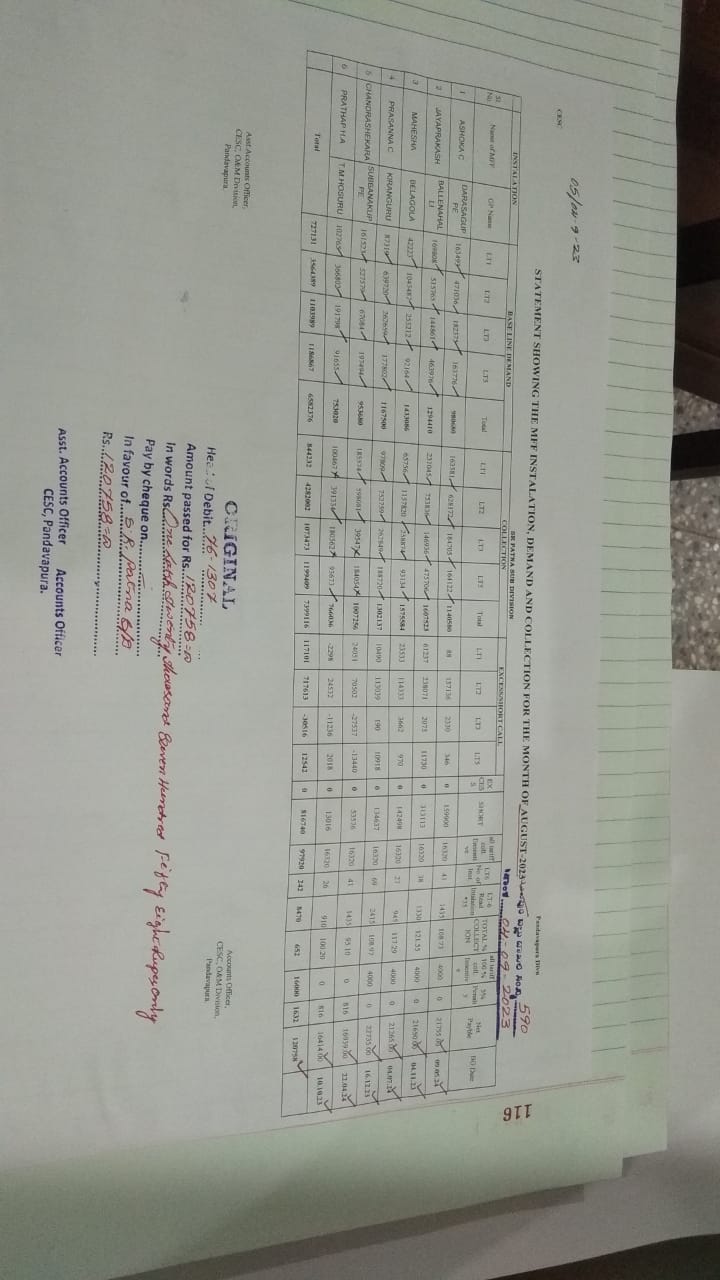 CESC
05/04-9-23
Pandavapura Divn
STATEMENT SHOWING THE MFF INSTALATION, DEMAND AND COLLECTION FOR THE MONTH OF AUGUST-2023 590
04-09-2023
116
SR PATNA SUB DIVISION
INSTALATION BASE LINE DEMAND COLLECTION EXCESS/SHORT CALL
Sl No Name of MFF GP Name LT1 LT2 LT3 LT5 Total LT1 LT2 LT3 LT5 Total LT1 LT2 LT3 LT5 EXCESS SHORT Net Payble BG Date
1 ASHOKA C DARASAGUPPE 163493 471036 182375 163776 980680 163581 628172 184705 164122 1140580 88 157136 2330 346 0 159900 16320 41 1435 108.73 4000 0 21755.00 09.05.24
2 JAYAPRAKASH BALLENAHALLI 169808 515765 144861 463976 1294410 237045 753836 146936 475706 1607523 61237 238071 2075 11730 0 313113 16320 38 1330 121.55 4000 0 21650.00 04.11.23
3 MAHESHA BELAGOLA 42223 1043487 255212 92164 1433086 65756 1157820 258874 93134 1575584 23533 114333 3662 970 0 142498 16320 27 945 117.29 4000 0 21265.00 04.07.24
4 PRASANNA C KIRANGURU 87319 639720 262659 177802 1167500 97809 752759 262849 188720 1302137 10490 113039 190 10918 0 134637 16320 69 2415 108.97 4000 0 22735.00 16.12.23
5 CHANDRASHEKARA SUBBANAKUPPE 161523 527579 67084 197494 953680 185574 598081 39547 184054 1007256 24051 70502 -27537 -13440 0 53576 16320 41 1435 95.10 0 816 16939.00 22.04.24
6 PRATHAP H.A T.M HOSURU 102765 366802 191798 91655 753020 100467 391334 180562 93673 766036 -2298 24532 -11236 2018 0 13016 16320 26 910 100.20 0 816 16414.00 10.10.23
Total 727131 3564389 1103989 1186867 6582376 844232 4282002 1073473 1199409 7399116 117101 717613 -30516 12542 0 816740 97920 242 8470 652 16000 1632 120758
Asst.Accounts Officer,
CESC, O&M Division,
Pandavapura.
Accounts Officer,
CESC, O&M Division,
Pandavapura.
ORIGINAL
Head of Debit...76-1307
Amount passed for Rs...120758=00
In words Rs. One lakh twenty thousand Seven Hundred Fifty Eight Rupees only
Pay by cheque on..........
In favour of...S.R. Patna S/D
Rs...120758=00
Asst. Accounts Officer Accounts Officer
CESC, Pandavapura.